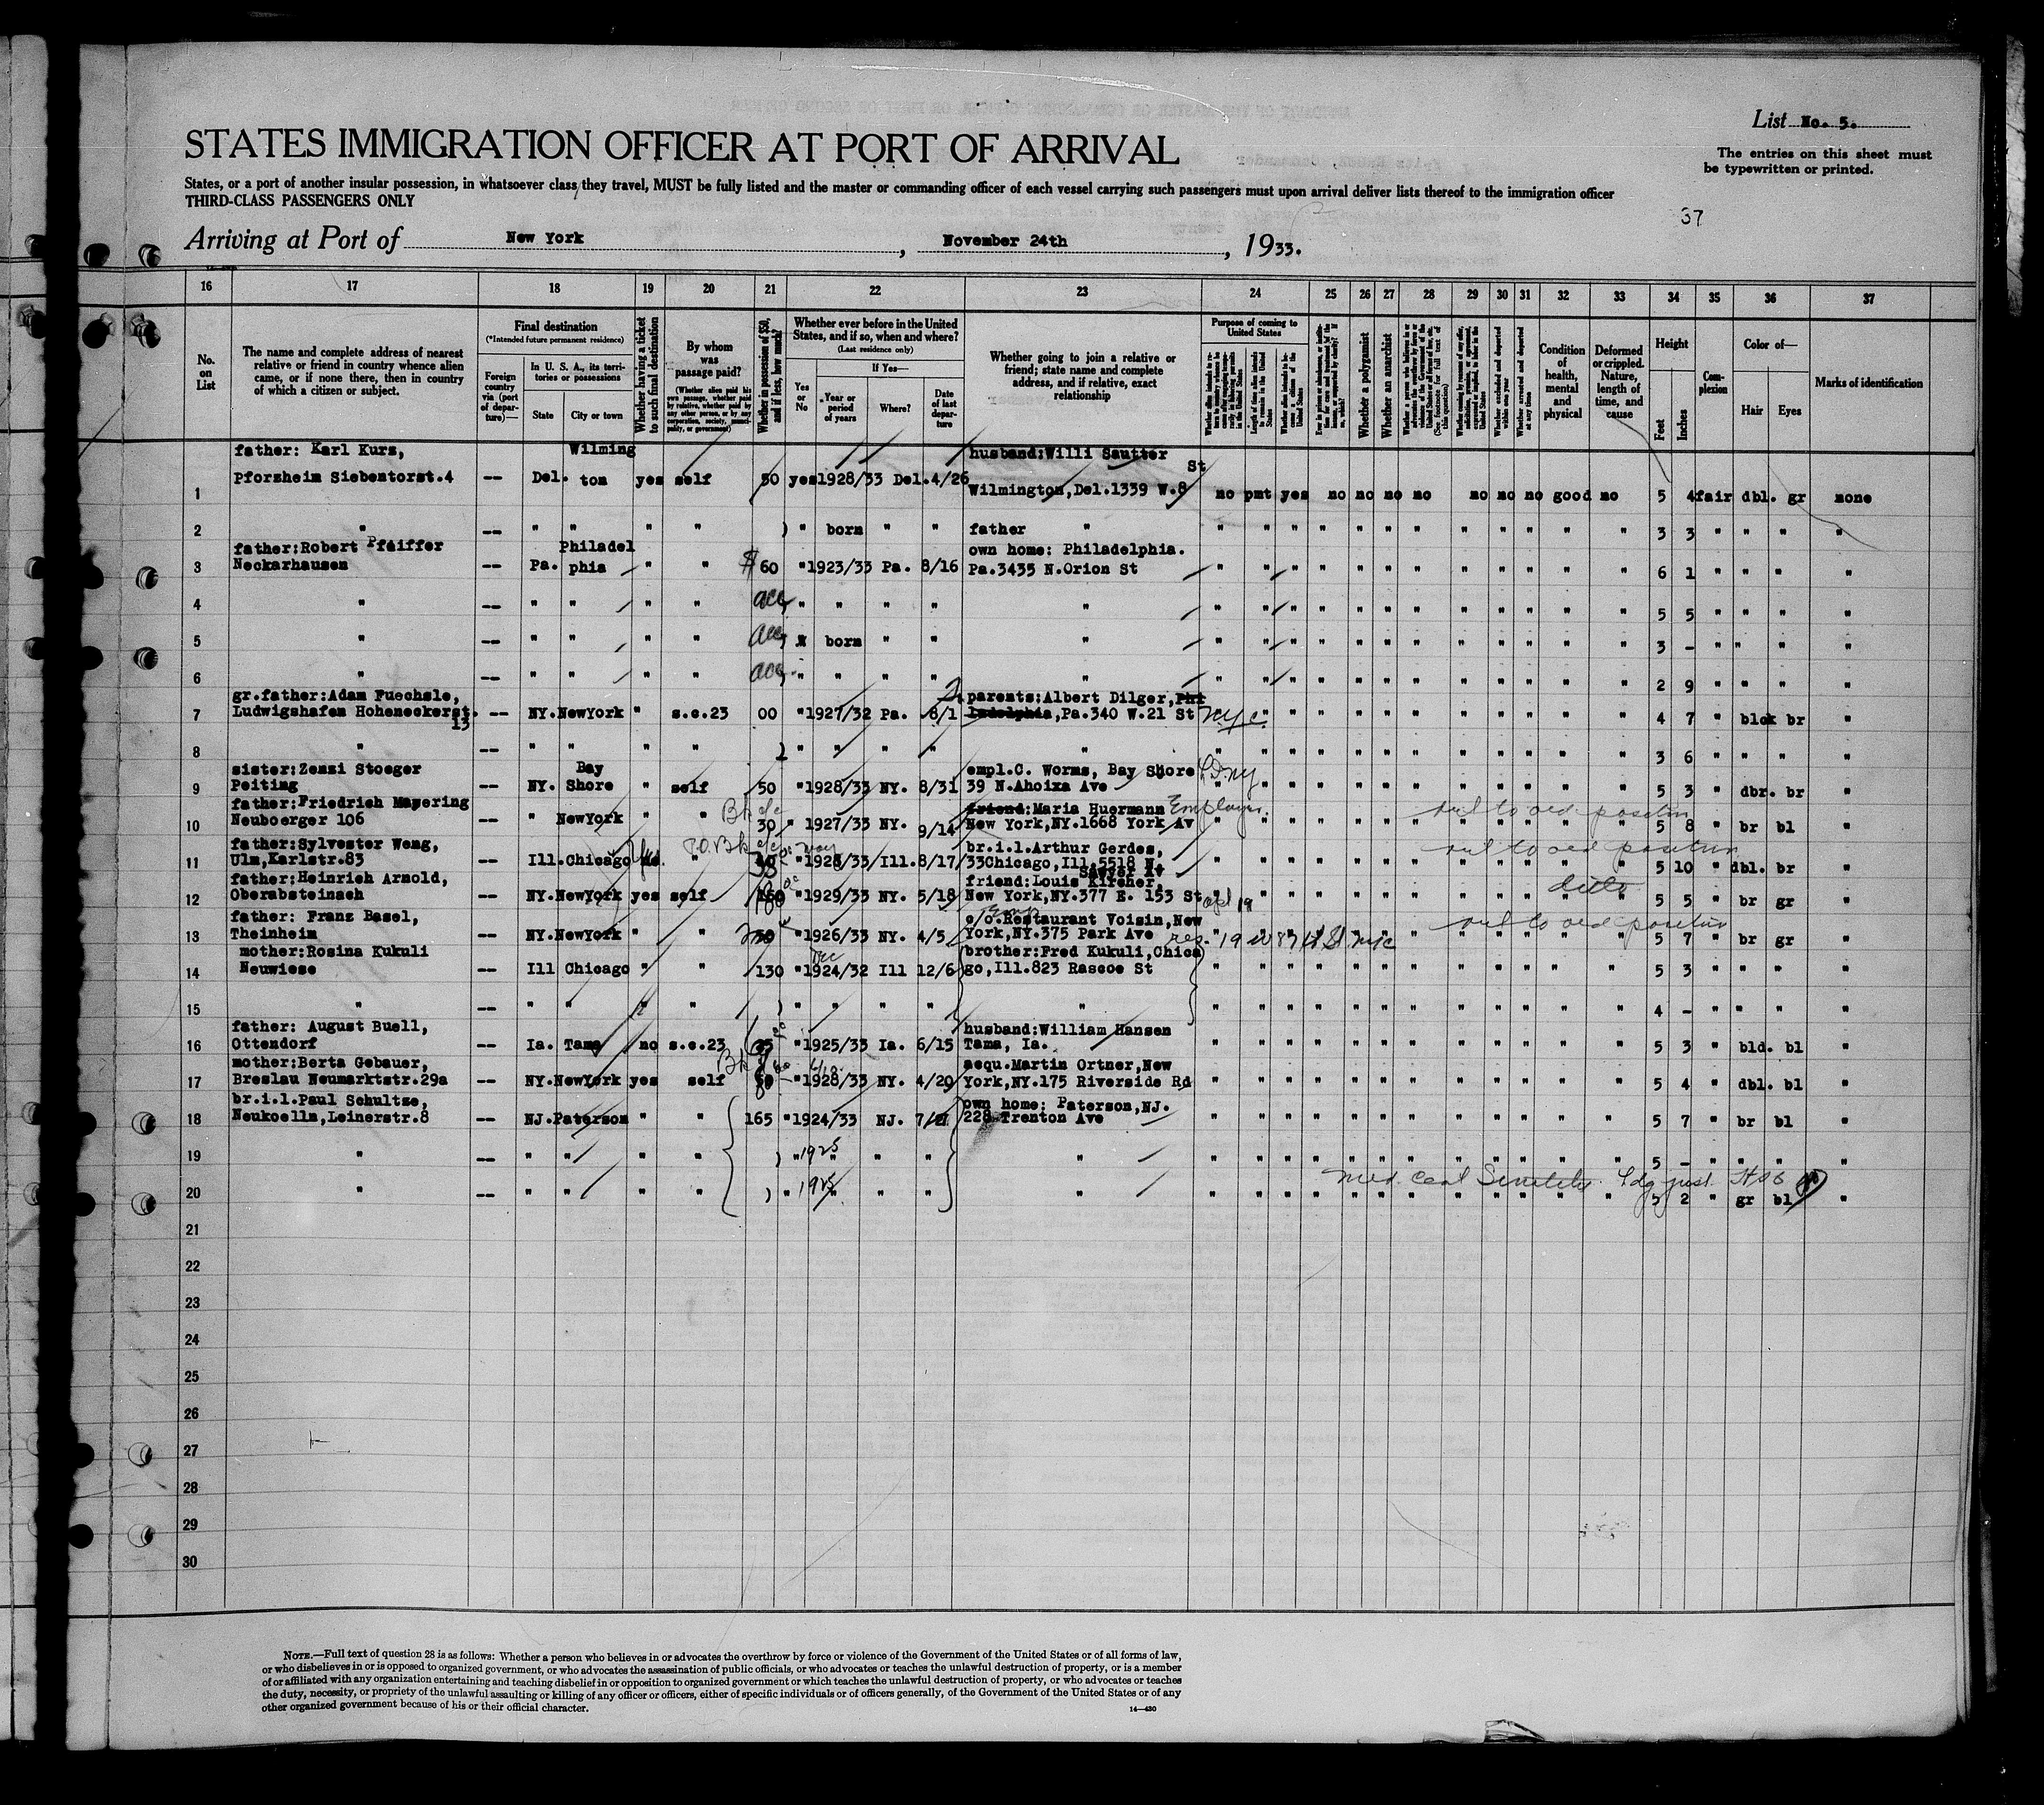 List No. 5.
STATES IMMIGRATION OFFICER AT PORT OF ARRIVAL
The entries on this sheet must
be typewritten or printed.
States, or a port of another insular possession, in whatsoever class they travel, MUST be fully listed and the master or commanding officer of each vessel carrying such passengers must upon arrival deliver lists thereof to the immigration officer
THIRD-CLASS PASSENGERS ONLY
37
Arriving at Port of New York, November 24th, 1933.
16 17 18 19 20 21 22 23 24 25 26 27 28 29 30 31 32 33 34 35 36 37
No. on List
The name and complete address of nearest relative or friend in country whence alien came, or if none there, then in country of which a citizen or subject.
Final destination
(*Intended future permanent residence)
Foreign country via (port of departure)—
In U. S. A., its territories or possessions
State
City or town
Whether having a ticket to such final destination
By whom was passage paid?
(Whether alien paid his own passage, whether paid by relative, whether paid by any other person, or by any corporation, society, municipality, or government)
Whether in possession of $50, and if less, how much?
Whether ever before in the United States, and if so, when and where?
(Last residence only)
Yes or No
If Yes—
Year or period of years
Where?
Date of last departure
Whether going to join a relative or friend; state name and complete address, and if relative, exact relationship
Purpose of coming to United States
Length of time alien intends to remain in the United States
Whether alien intends to become a citizen of the United States
Whether a polygamist
Whether an anarchist
(See footnote for full text of this question)
Whether excluded and deported within one year
Whether arrested and deported at any time
Condition of health, mental and physical
Deformed or crippled. Nature, length of time, and cause
Height
Feet
Inches
Complexion
Color of—
Hair
Eyes
Marks of identification
father: Karl Kurs, Wilming husband:Willi Sautter
1 Pforzheim Siebentorst.4 -- Del. ton yes self 50 yes 1928/33 Del. 4/26 Wilmington,Del.1339 W.8 St no pmt yes no no no no no no no good no 5 4 fair dbl. gr none
2 " -- " " " " ) " born " " father " " " " " " " " " " " " " 3 3 " " " "
father:Robert Pfeiffer Philadel own home: Philadelphia.
3 Neckarhausen -- Pa. phia " " $ 60 " 1923/33 Pa. 8/16 Pa.3435 N.Orion St " " " " " " " " " " " " 6 1 " " " "
4 " -- " " " " acc " " " " " " " " " " " " " " " " " 5 5 " " " "
5 " -- " " " " acc born " " " " " " " " " " " " " " " 3 - " " " "
6 " -- " " " " acc " " " " " " " " " " " " " " " " " 2 9 " " " "
gr.father:Adam Fuechsle, parents:Albert Dilger,Phi
7 Ludwigshafen Hoheneckerst. 13 -- NY. NewYork " s.c.23 00 " 1927/32 Pa. 8/1 ladelphia,Pa.340 W.21 St NYC " " " " " " " " " " " 4 7 " blck br "
8 " -- " " " " ) " " " " " " " " " " " " " " " " " 3 6 " " " "
sister:Zenzi Stoeger Bay empl.C. Worms, Bay Shore
9 Peiting -- NY. Shore " self 50 " 1928/33 NY. 8/31 39 N.Ahoixa Ave " " " " " " " " " " " " 5 3 " dbr. br "
father:Friedrich Mayering friend:Maria Huermann Employer.
10 Neuboerger 106 -- " NewYork " " 30 " 1927/33 NY. 9/14 New York,NY.1668 York Av " " " " " " " " " " " " 5 8 " br bl "
ret to old position
father:Sylvester Weng, br.i.l.Arthur Gerdes,
11 Ulm,Karlstr.83 -- Ill. Chicago " " 1928/33 Ill. 8/17/33 Chicago,Ill.5518 N. Sawyer Av " " " " " " " " " " " " 5 10 " dbl. br "
ret to old position
father:Heinrich Arnold, friend:Louis Kircher,
12 Oberabsteinach -- NY. NewYork yes self " 1929/33 NY. 5/18 New York,NY.377 E. 153 St apt 19 " " " " " " " " " " " 5 5 " br gr "
ditto
father: Franz Basel, c/o.Restaurant Voisin,New
13 Theinheim -- NY. NewYork " " 50 " 1926/33 NY. 4/5 York,NY.375 Park Ave res. 19 W 87th St NYC " " " " " " " " " 5 7 " br gr "
ret to old position
mother:Rosina Kukuli brother:Fred Kukuli,Chica
14 Neuwiese -- Ill Chicago " " 130 " 1924/32 Ill 12/6 go,Ill.823 Rascoe St " " " " " " " " " " " " 5 3 " " " "
15 " -- " " " " ) " " " " " " " " " " " " " " " " " 4 - " " " "
father: August Buell, husband:William Hansen
16 Ottendorf -- Ia. Tama no s.c.23 " 1925/33 Ia. 6/15 Tama, Ia. " " " " " " " " " " " " 5 3 " bld. bl "
mother:Berta Gebauer, aequ.Martin Ortner,New
17 Breslau Neumarktstr.29a -- NY. NewYork yes self " 1928/33 NY. 4/20 York,NY.175 Riverside Rd " " " " " " " " " " " " 5 4 " dbl. bl "
br.i.l.Paul Schultze, own home: Paterson,NJ.
18 Neukoelln,Leinerstr.8 -- NJ. Paterson " " 165 " 1924/33 NJ. 228 Trenton Ave " " " " " " " " " " " " 5 7 " br bl "
19 " -- " " " " ) " 1925 " " " " " " " " " " " " " " " 5 - " " " "
20 " -- " " " " ) " 1925 " " " " " " " " " " " " " " " 5 2 " gr bl "
Med. Cert Senility
21
22
23
24
25
26
27
28
29
30
NOTE.—Full text of question 28 is as follows: Whether a person who believes in or advocates the overthrow by force or violence of the Government of the United States or of all forms of law,
or who disbelieves in or is opposed to organized government, or who advocates the assassination of public officials, or who advocates or teaches the unlawful destruction of property, or is a member
of or affiliated with any organization entertaining and teaching disbelief in or opposition to organized government or which teaches the unlawful destruction of property, or who advocates or teaches
the duty, necessity, or propriety of the unlawful assaulting or killing of any officer or officers, either of specific individuals or of officers generally, of the Government of the United States or of any
other organized government because of his or their official character.
14—430